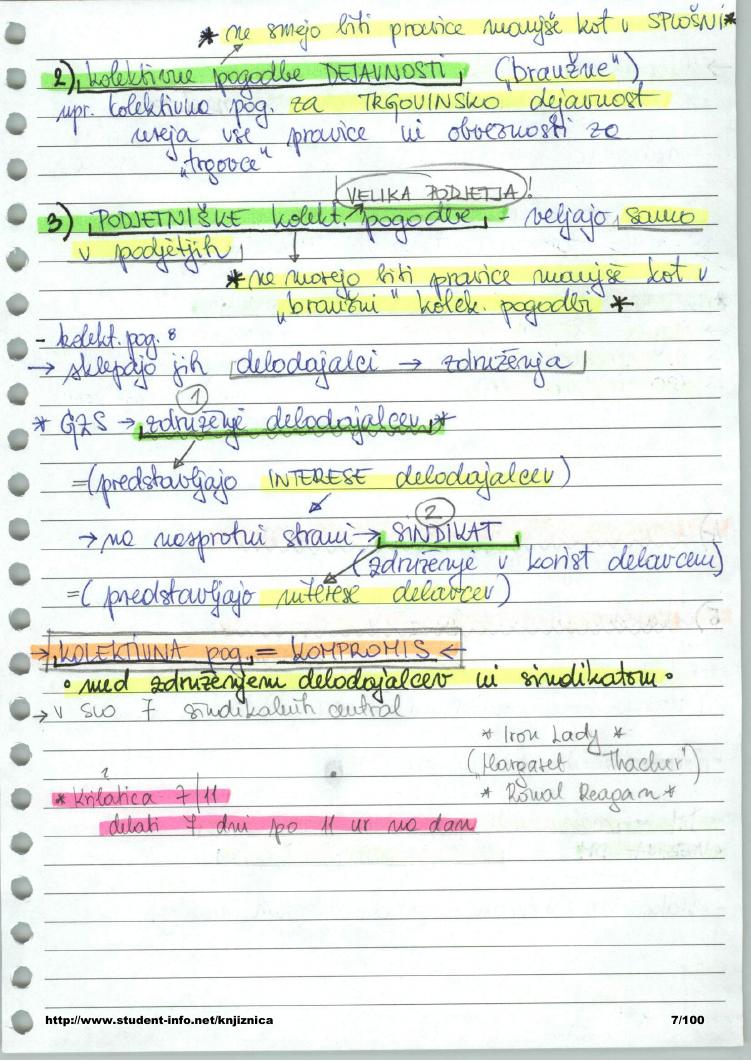 * ne smejo biti pravice manjše kot v SPLOŠNI*
2) kolektivne pogodbe DEJAVNOSTI („branžne")
npr. kolektivna pog. za TRGOVINSKO dejavnost
ureja vse pravice in obveznosti za
„trgovce"
VELIKA PODJETJA!
3) PODJETNIŠKE kolekt. pogodbe - veljajo samo
v podjetjih
* ne morejo biti pravice manjše kot v
„branžni" kolek. pogodbi *
- kolekt. pog. :
→ sklepajo jih delodajalci → združenja
1
* GZS → združenje delodajalcev *
=(predstavljajo INTERESE delodajalcev)
2
→ na nasprotni strani → SINDIKAT
(združenje v korist delavcem)
=( predstavljajo interese delavcev)
→ KOLEKTIVNA pog. = KOMPROMIS ←
• med združenjem delodajalcev in sindikatom •
→ v SLO 7 sindikalnih central
* Iron Lady *
(„Margaret Thacher")
* Ronal Reagan *
?
* Krilatica 7/11
delati 7 dni po 11 ur na dan
http://www.student-info.net/knjiznica
7/100